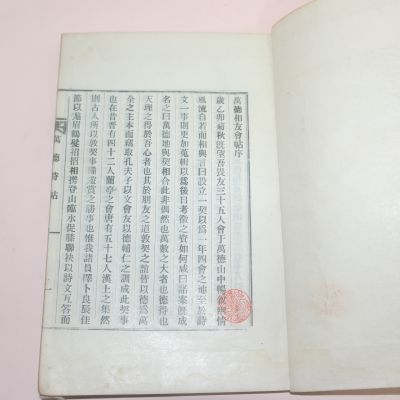 萬德相友會帖序
歲乙卯菊秋旣望吾儕友三十五人會于萬德山中暢敍幽情
風流自若而相與言曰設立一契以爲一年四會之地至於詩
文一事則更加蒐輯以爲後日考徵之資如何咸曰諾案旣成
名之曰萬德地與契相合此非偶然也萬數之大者也德得也
天理之得於吾心者也其於朋友之道敦契之誼皆以德爲萬
全之主本而竊取孔夫子以文會友以德輔仁之訓成此契事
也在昔晋有四十二人蘭亭之會唐有五十七人漢上之集然
則古人所以敦契事備遊賞之勝事也惟我諸員擇卜良辰佳
節以尨眉鶴髮招招相携登山臨水促膝聯袂以詩文互答而
萬德詩帖
一